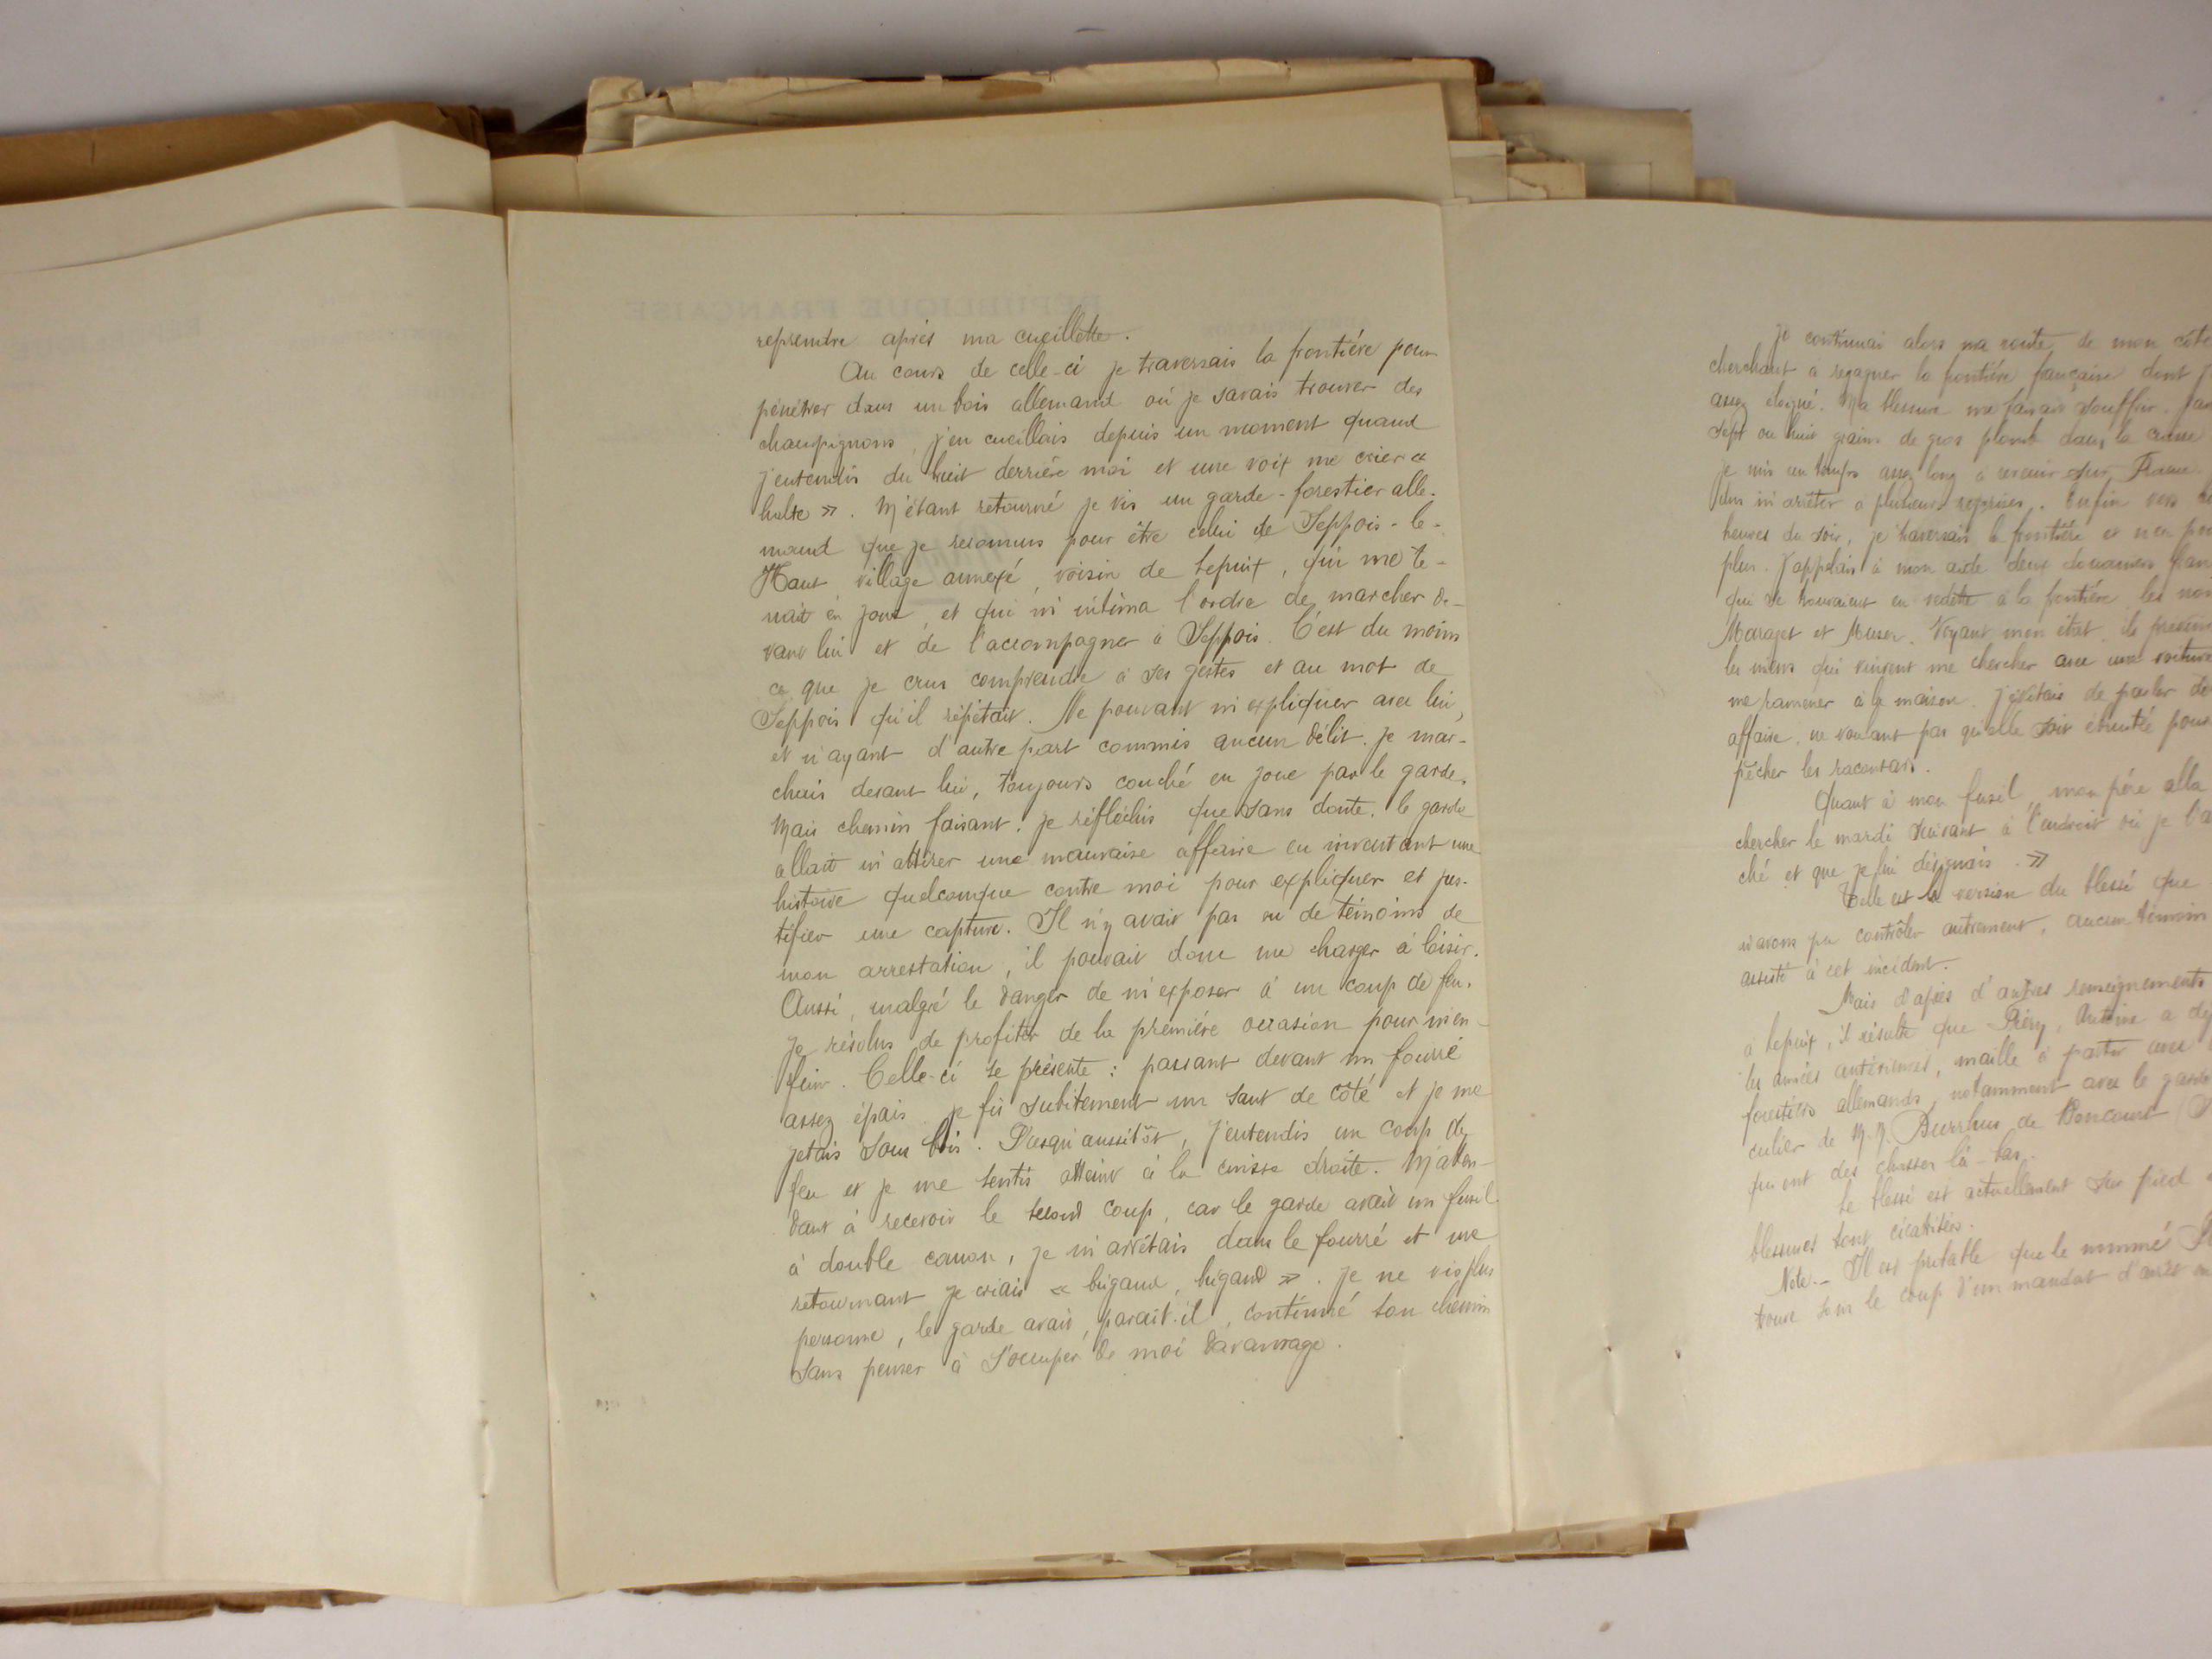 reprendre après ma cueillette.
Au cours de celle-ci je traversais la frontière pour
pénétrer dans un bois allemand où je savais trouver des
champignons, j'en cueillais depuis un moment quand
j'entendis du bruit derrière moi et une voix me crier «
halte ». M'étant retourné je vis un garde-forestier alle-
mand que je reconnus pour être celui de Seppois-le-
Haut, village annexé, voisin de Lepuix, qui me te-
nait en joue, et qui m'intima l'ordre de marcher de-
vant lui et de l'accompagner à Seppois. C'est du moins
ce que je crus comprendre à ses gestes et au mot de
Seppois qu'il répétait. Ne pouvant m'expliquer avec lui,
et n'ayant d'autre part commis aucun délit, je mar-
chais devant lui, toujours couché en joue par le garde.
Mais chemin faisant, je réfléchis que sans doute, le garde
allait m'attirer une mauvaise affaire en inventant une
histoire quelconque contre moi pour expliquer et jus-
tifier une capture. Il n'y avait pas eu de témoins de
mon arrestation, il pouvait donc me charger à loisir.
Aussi, malgré le danger de m'exposer à un coup de feu,
je résolus de profiter de la première occasion pour m'en-
fuir. Celle-ci se présente : passant devant un fourré
assez épais je fis subitement un saut de côté et je me
jetais sous bois. Presqu'aussitôt, j'entendis un coup de
feu et je me sentis atteint à la cuisse droite. M'atten-
dant à recevoir le second coup, car le garde avait un fusil
à double canon, je m'arrêtais dans le fourré et me
retournant je criais « brigand, brigand ». Je ne vis plus
personne, le garde avait, paraît-il, continué son chemin
sans penser à s'occuper de moi davantage.
Je continuai alors ma route de mon côté
cherchant à regagner la frontière française dont j
assez éloigné. Ma blessure me faisait souffrir. J'av
sept ou huit grains de gros plomb dans la cuisse
je mis un temps assez long à revenir sur France.
dus m'arrêter à plusieurs reprises. Enfin vers
heures du soir, je traversais la frontière et n'en pou
plus. J'appelais à mon aide deux douaniers fran
qui se trouvaient en vedette à la frontière, les nom
Marajet et Muser. Voyant mon état, ils prévin
les miens qui vinrent me chercher avec une voiture
me ramener à la maison. J'évitais de parler de
affaire, ne voulant pas qu'elle soit ébruitée pour
pêcher les racontars.
Quant à mon fusil, mon père alla
chercher le mardi suivant à l'endroit où je l'a
ché et que je lui désignais. »
Telle est la version du blessé que
n'avons pu contrôler autrement, aucun témoin
assisté à cet incident.
Mais d'après d'autres renseignements
à Lepuix, il résulte que Antoine a dé
les années antérieures, maille à partir avec
forestiers allemands, notamment avec le garde
culier de M.M. Burrhus de Boncourt (S
qui ont des chasses là-bas.
Le blessé est actuellement sur pied
blessures sont cicatrisées.
Note.- Il est probable que le nommé
trouve sous le coup d'un mandat d'arrêt